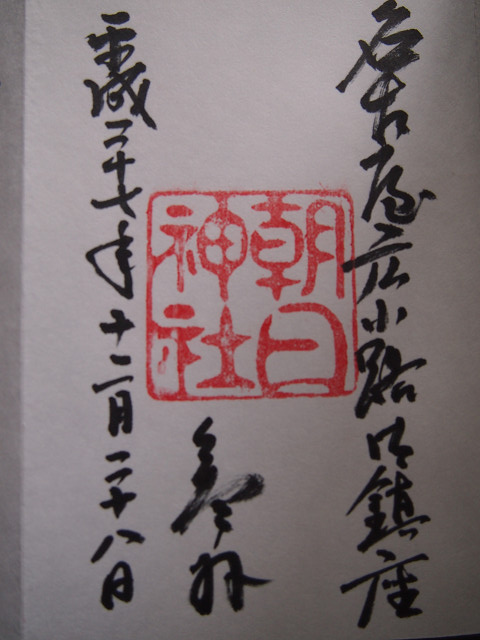 名古屋広小路御鎮座
朝日
神社
参拝
平成二十七年十二月二十八日